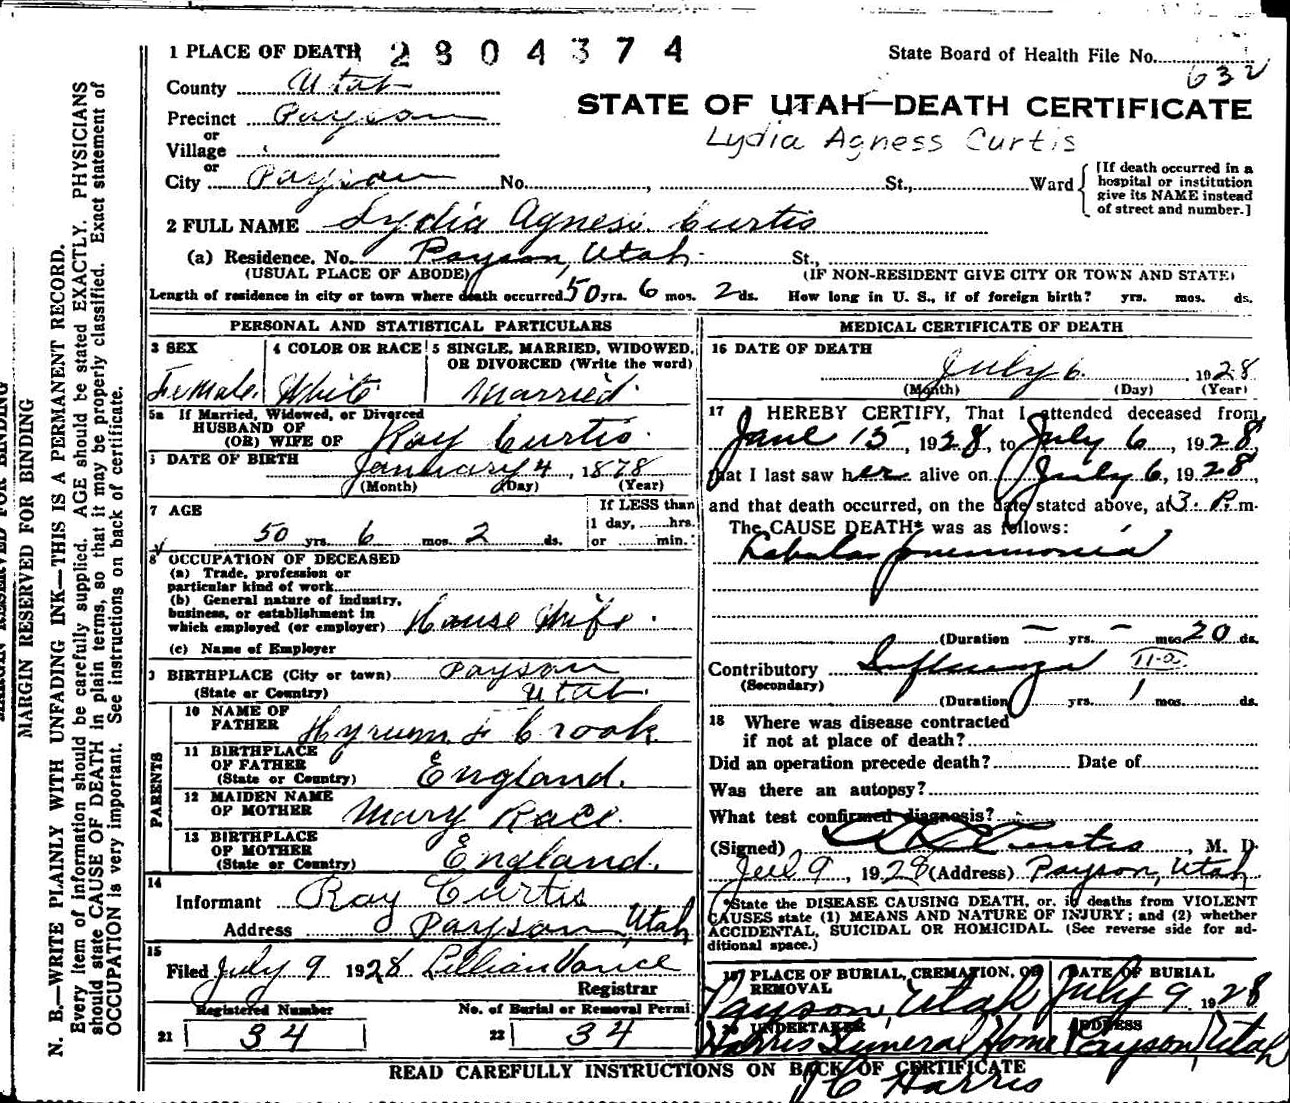 1 PLACE OF DEATH 2804374
State Board of Health File No. 632
County Utah
STATE OF UTAH—DEATH CERTIFICATE
Precinct Payson
Lydia Agness Curtis
or
Village
or
City Payson No. , St., Ward
[If death occurred in a
hospital or institution
give its NAME instead
of street and number.]
2 FULL NAME Lydia Agness Curtis
(a) Residence. No. Payson, Utah. St.,
(USUAL PLACE OF ABODE) (IF NON-RESIDENT GIVE CITY OR TOWN AND STATE)
Length of residence in city or town where death occurred 50 yrs. 6 mos. 2 ds. How long in U. S., if of foreign birth? yrs. mos. ds.
PERSONAL AND STATISTICAL PARTICULARS
3 SEX
Female
4 COLOR OR RACE
White
5 SINGLE, MARRIED, WIDOWED,
OR DIVORCED (Write the word)
Married
5a If Married, Widowed, or Divorced
HUSBAND OF
(OR) WIFE OF Ray Curtis
DATE OF BIRTH January 4, 1878
(Month) (Day) (Year)
7 AGE
50 yrs. 6 mos. 2 ds.
If LESS than
1 day, hrs.
or min.
8 OCCUPATION OF DECEASED
(a) Trade, profession or
particular kind of work
(b) General nature of industry,
business, or establishment in
which employed (or employer) House Wife
(c) Name of Employer
9 BIRTHPLACE (City or town) Payson
(State or Country) Utah
PARENTS
10 NAME OF
FATHER Hyrum F Crook
11 BIRTHPLACE
OF FATHER
(State or Country) England.
12 MAIDEN NAME
OF MOTHER Mary Race
13 BIRTHPLACE
OF MOTHER
(State or Country) England.
14
Informant Ray Curtis
Address Payson, Utah
15
Filed July 9 1928 Lillian Vance
Registrar
Registered Number
21 34
No. of Burial or Removal Permit
22 34
MEDICAL CERTIFICATE OF DEATH
16 DATE OF DEATH
July 6 1928
(Month) (Day) (Year)
17 I HEREBY CERTIFY, That I attended deceased from
June 15, 1928, to July 6, 1928
that I last saw her alive on July 6, 1928,
and that death occurred, on the date stated above, at 3 P.m.
The CAUSE DEATH* was as follows:
Lobular pneumonia
(Duration — yrs. — mos. 20 ds.
Contributory Influenza 11-a
(Secondary)
(Duration yrs. 1 mos. ds.
18 Where was disease contracted
if not at place of death?
Did an operation precede death? Date of
Was there an autopsy?
What test confirmed diagnosis?
(Signed) Curtis, M. D.
Jul 9, 1928 (Address) Payson, Utah
*State the DISEASE CAUSING DEATH, or, if deaths from VIOLENT
CAUSES state (1) MEANS AND NATURE OF INJURY; and (2) whether
ACCIDENTAL, SUICIDAL OR HOMICIDAL. (See reverse side for ad-
ditional space.)
19 PLACE OF BURIAL, CREMATION, OR
REMOVAL
Payson, Utah
DATE OF BURIAL
July 9 1928
20 UNDERTAKER
Harris Funeral Home
ADDRESS
Payson, Utah
J C Harris
READ CAREFULLY INSTRUCTIONS ON BACK OF CERTIFICATE
MARGIN RESERVED FOR BINDING
MARGIN RESERVED FOR BINDING
N. B.—WRITE PLAINLY WITH UNFADING INK—THIS IS A PERMANENT RECORD.
Every item of information should be carefully supplied. AGE should be stated EXACTLY. PHYSICIANS
should state CAUSE OF DEATH in plain terms, so that it may be properly classified. Exact statement of
OCCUPATION is very important. See instructions on back of certificate.